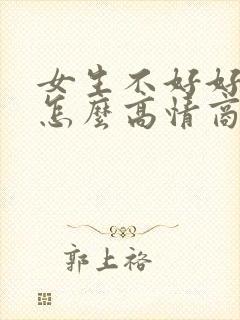 女生不好好
怎麼高情商
郭上裕